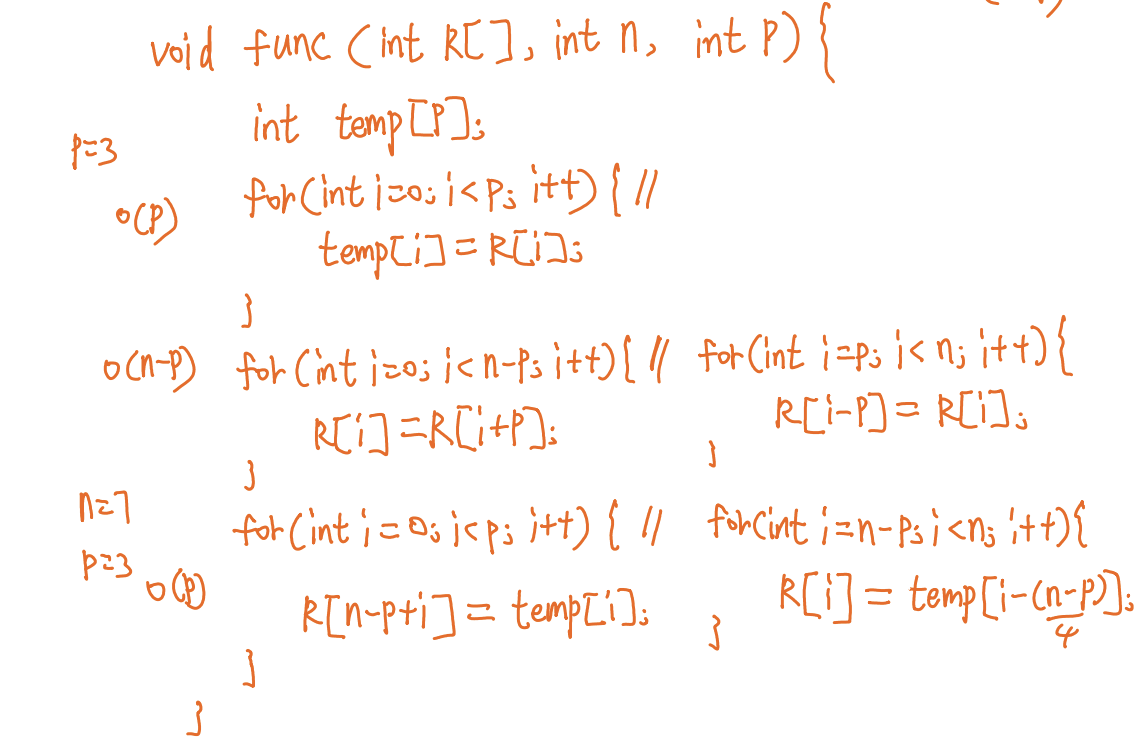 void func (int R[], int n, int P) {
int temp[P];
p=3
for(int i=0; i<P; i++) { //
o(P)
temp[i] = R[i];
}
o(n-p) for (int i=0; i<n-p; i++) { // for(int i=p; i<n; i++) {
R[i] = R[i+P]; R[i-P] = R[i];
} }
n=7
for (int i=0; i<p; i++) { // for(int i=n-p; i<n; i++) {
p=3
o(p) R[n-p+i] = temp[i]; R[i] = temp[i-(n-p)];
4
} }
}